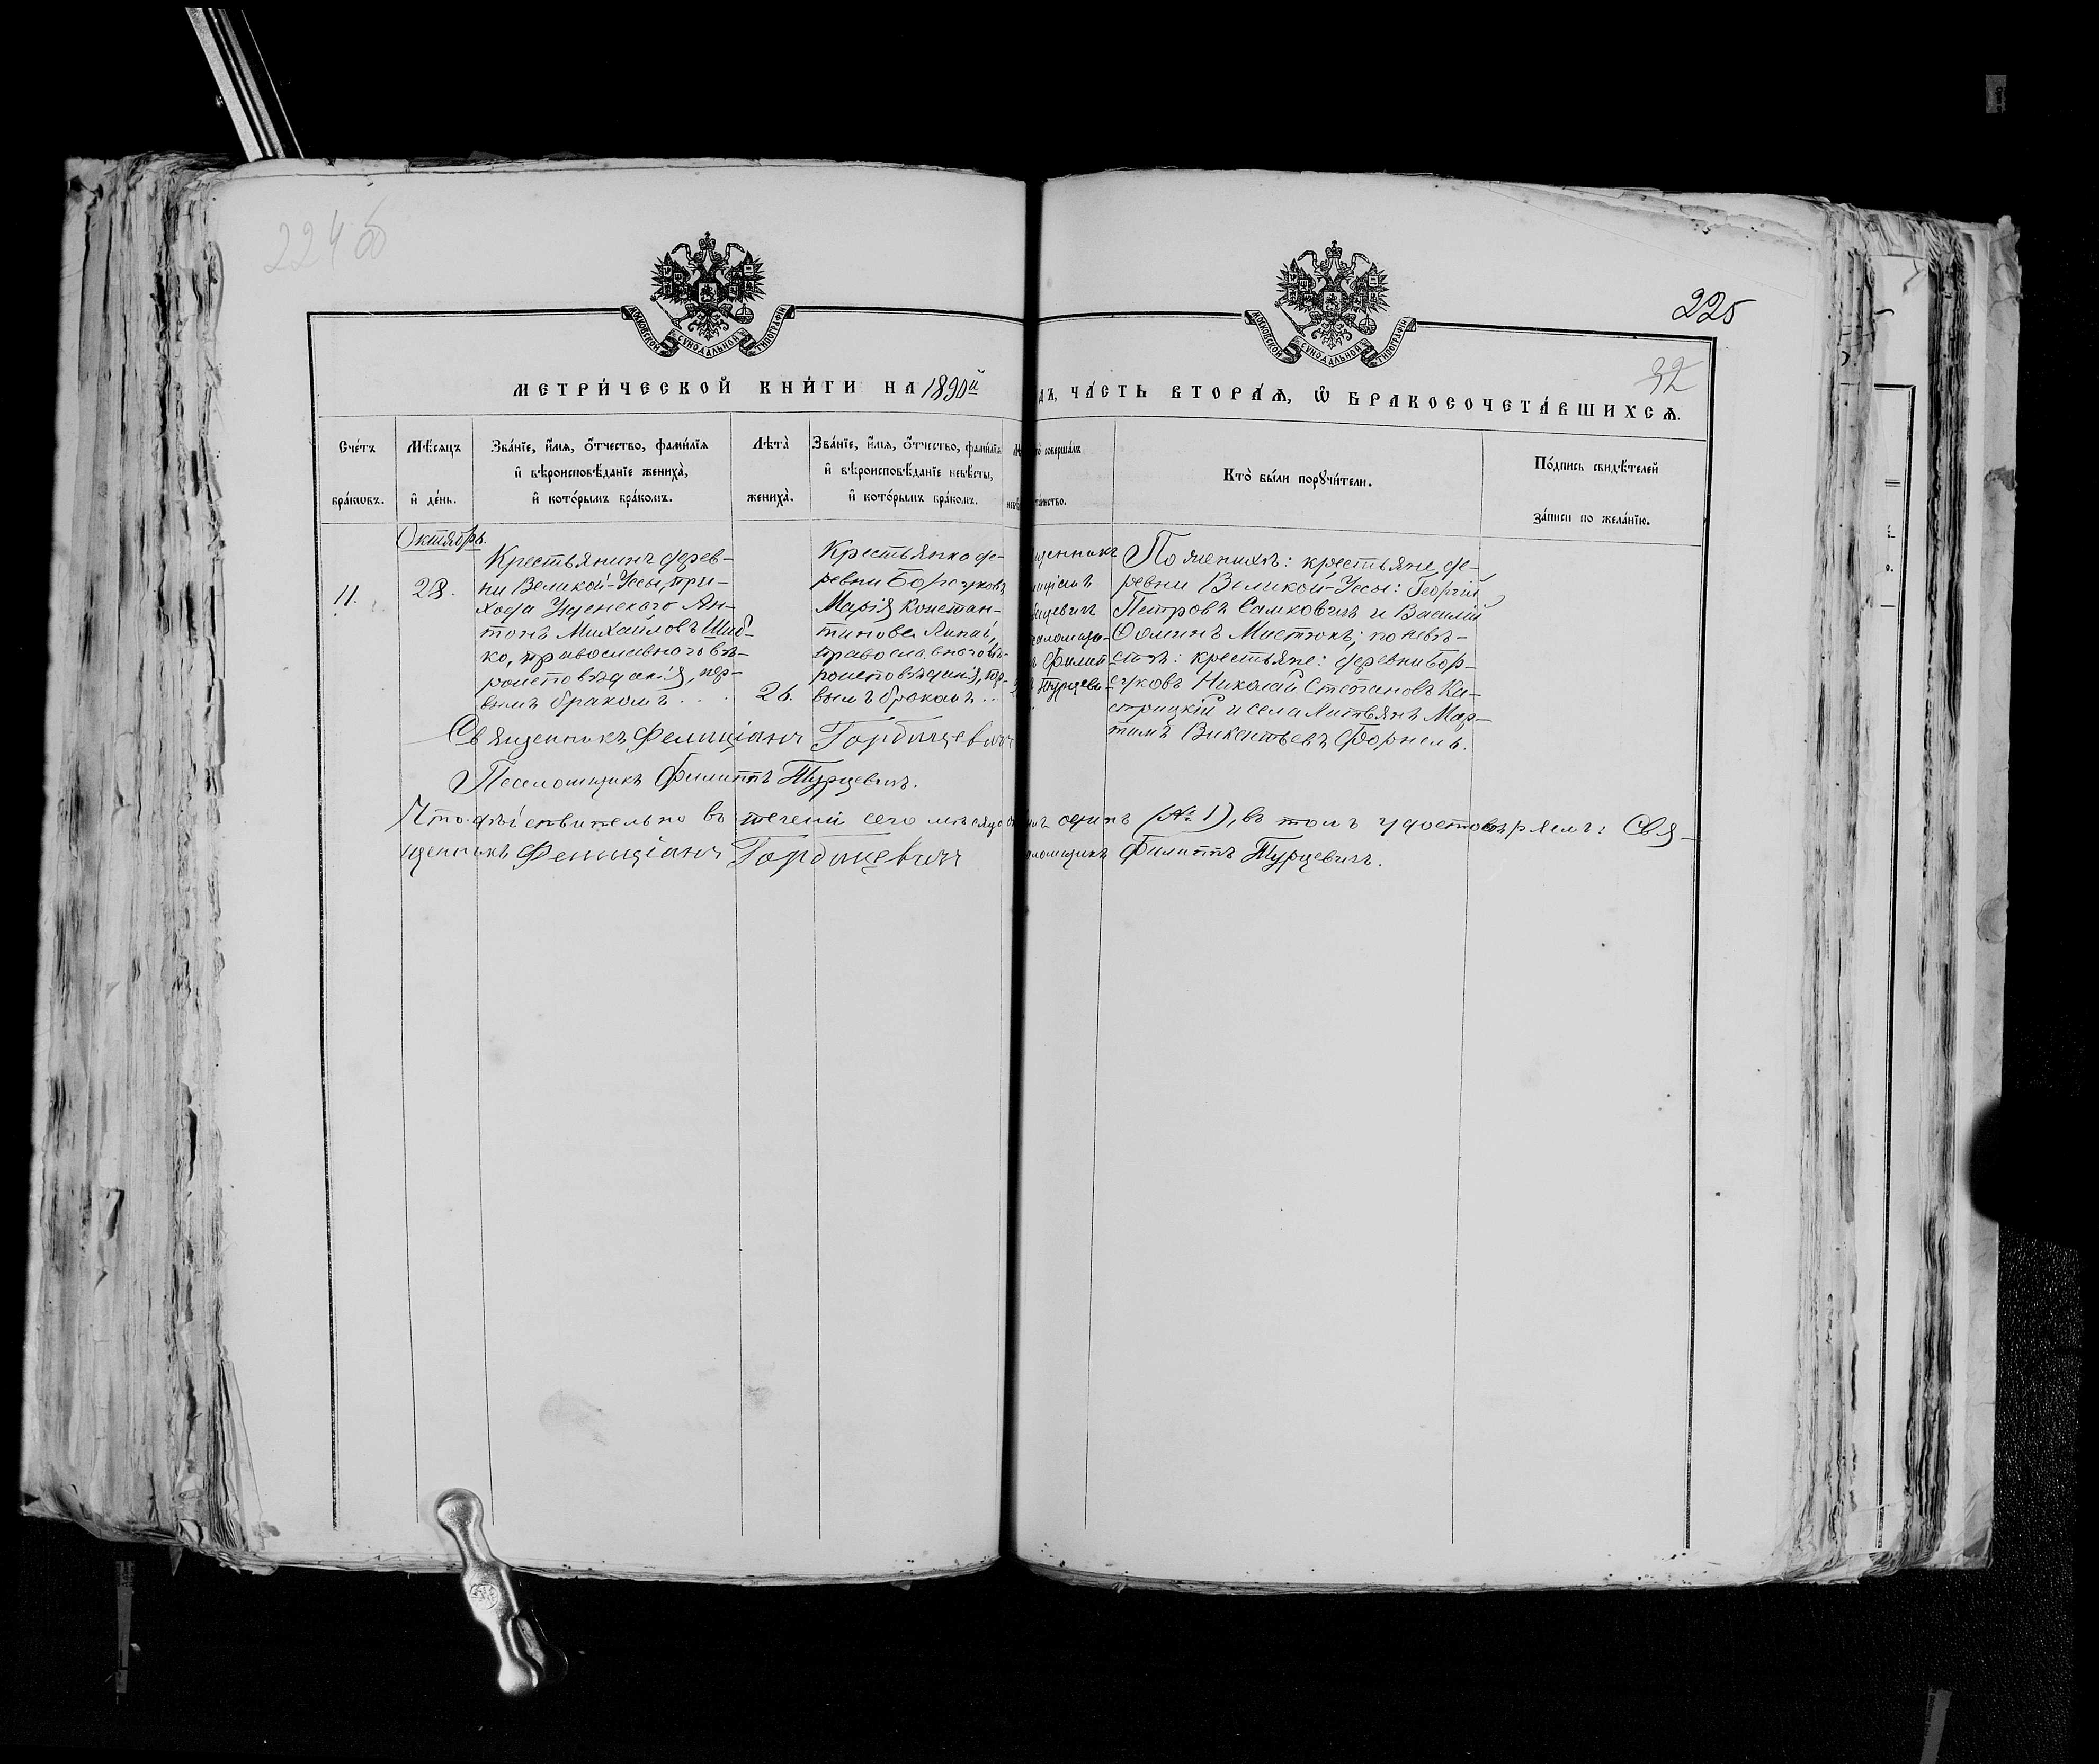 224 об
225
32
МОСКОВСКОЙ СУНОДАЛЬНОЙ ТИПОГРАФІИ
МОСКОВСКОЙ СУНОДАЛЬНОЙ ТИПОГРАФІИ
МЕТРИ́ЧЕСКОЙ КНИ́ГИ НА 1890й
ДЪ, ЧА́СТЬ ВТОРА́Ѧ, Ѽ БРАКОСОЧЕТА́ВШИХСѦ.
Сче́тъ
бра́кѡвъ.
Мѣ́сѧцъ
и҆ де́нь.
Зва́нїе, и҆́мѧ, ѻ҆́тчество, фами́лїѧ
и҆ вѣроисповѣ́данїе жениха̀,
и҆ кото́рымъ бра́комъ.
Лѣта̀
жениха̀.
Зва́нїе, и҆́мѧ, ѻ҆́тчество, фами́лїѧ
и҆ вѣроисповѣ́данїе невѣ́сты,
и҆ кото́рымъ бра́комъ.
соверша́лъ
та́инство.
Кто̀ бы́ли порꙋчи́тели.
По́дпись свидѣ́телей
за́писи по жела́нїю.
Октябрь.
11.
28.
Крестьянинъ дерев-
ни Великой-Усы, при-
хода Узденскаго Ан-
тонъ Михайловъ Шиб-
ко, православнаго вѣ-
роисповѣданія, пер-
вымъ бракомъ . . .
26.
Крестьянка де-
ревни Борсуковъ
Марія Констан-
тинова
православнаго вѣ-
роисповѣданія, пер-
вымъ бракомъ . .
щенникъ
Филип-
Турцеви-
По женихѣ: крестьяне де-
ревни Великой-Усы: Георгій
Петровъ Самковичъ и Василій
Ѳоминъ Мистюкъ; по невѣ-
стѣ: крестьяне: деревни Бор-
суковъ Николай Степановъ Ка-
стрицкій и села Литвянъ Мар-
тинъ Викентьевъ Форнель.
Священникъ Фелиціанъ Горбацевичъ
Псаломщикъ Филиппъ Турцевичъ.
Что дѣйствительно въ теченіи сего мѣсяца одинъ (№ 1), въ томъ удостовѣряемъ: Свя-
щенникъ Фелиціанъ Горбацевичъ
ломщикъ Филиппъ Турцевичъ.